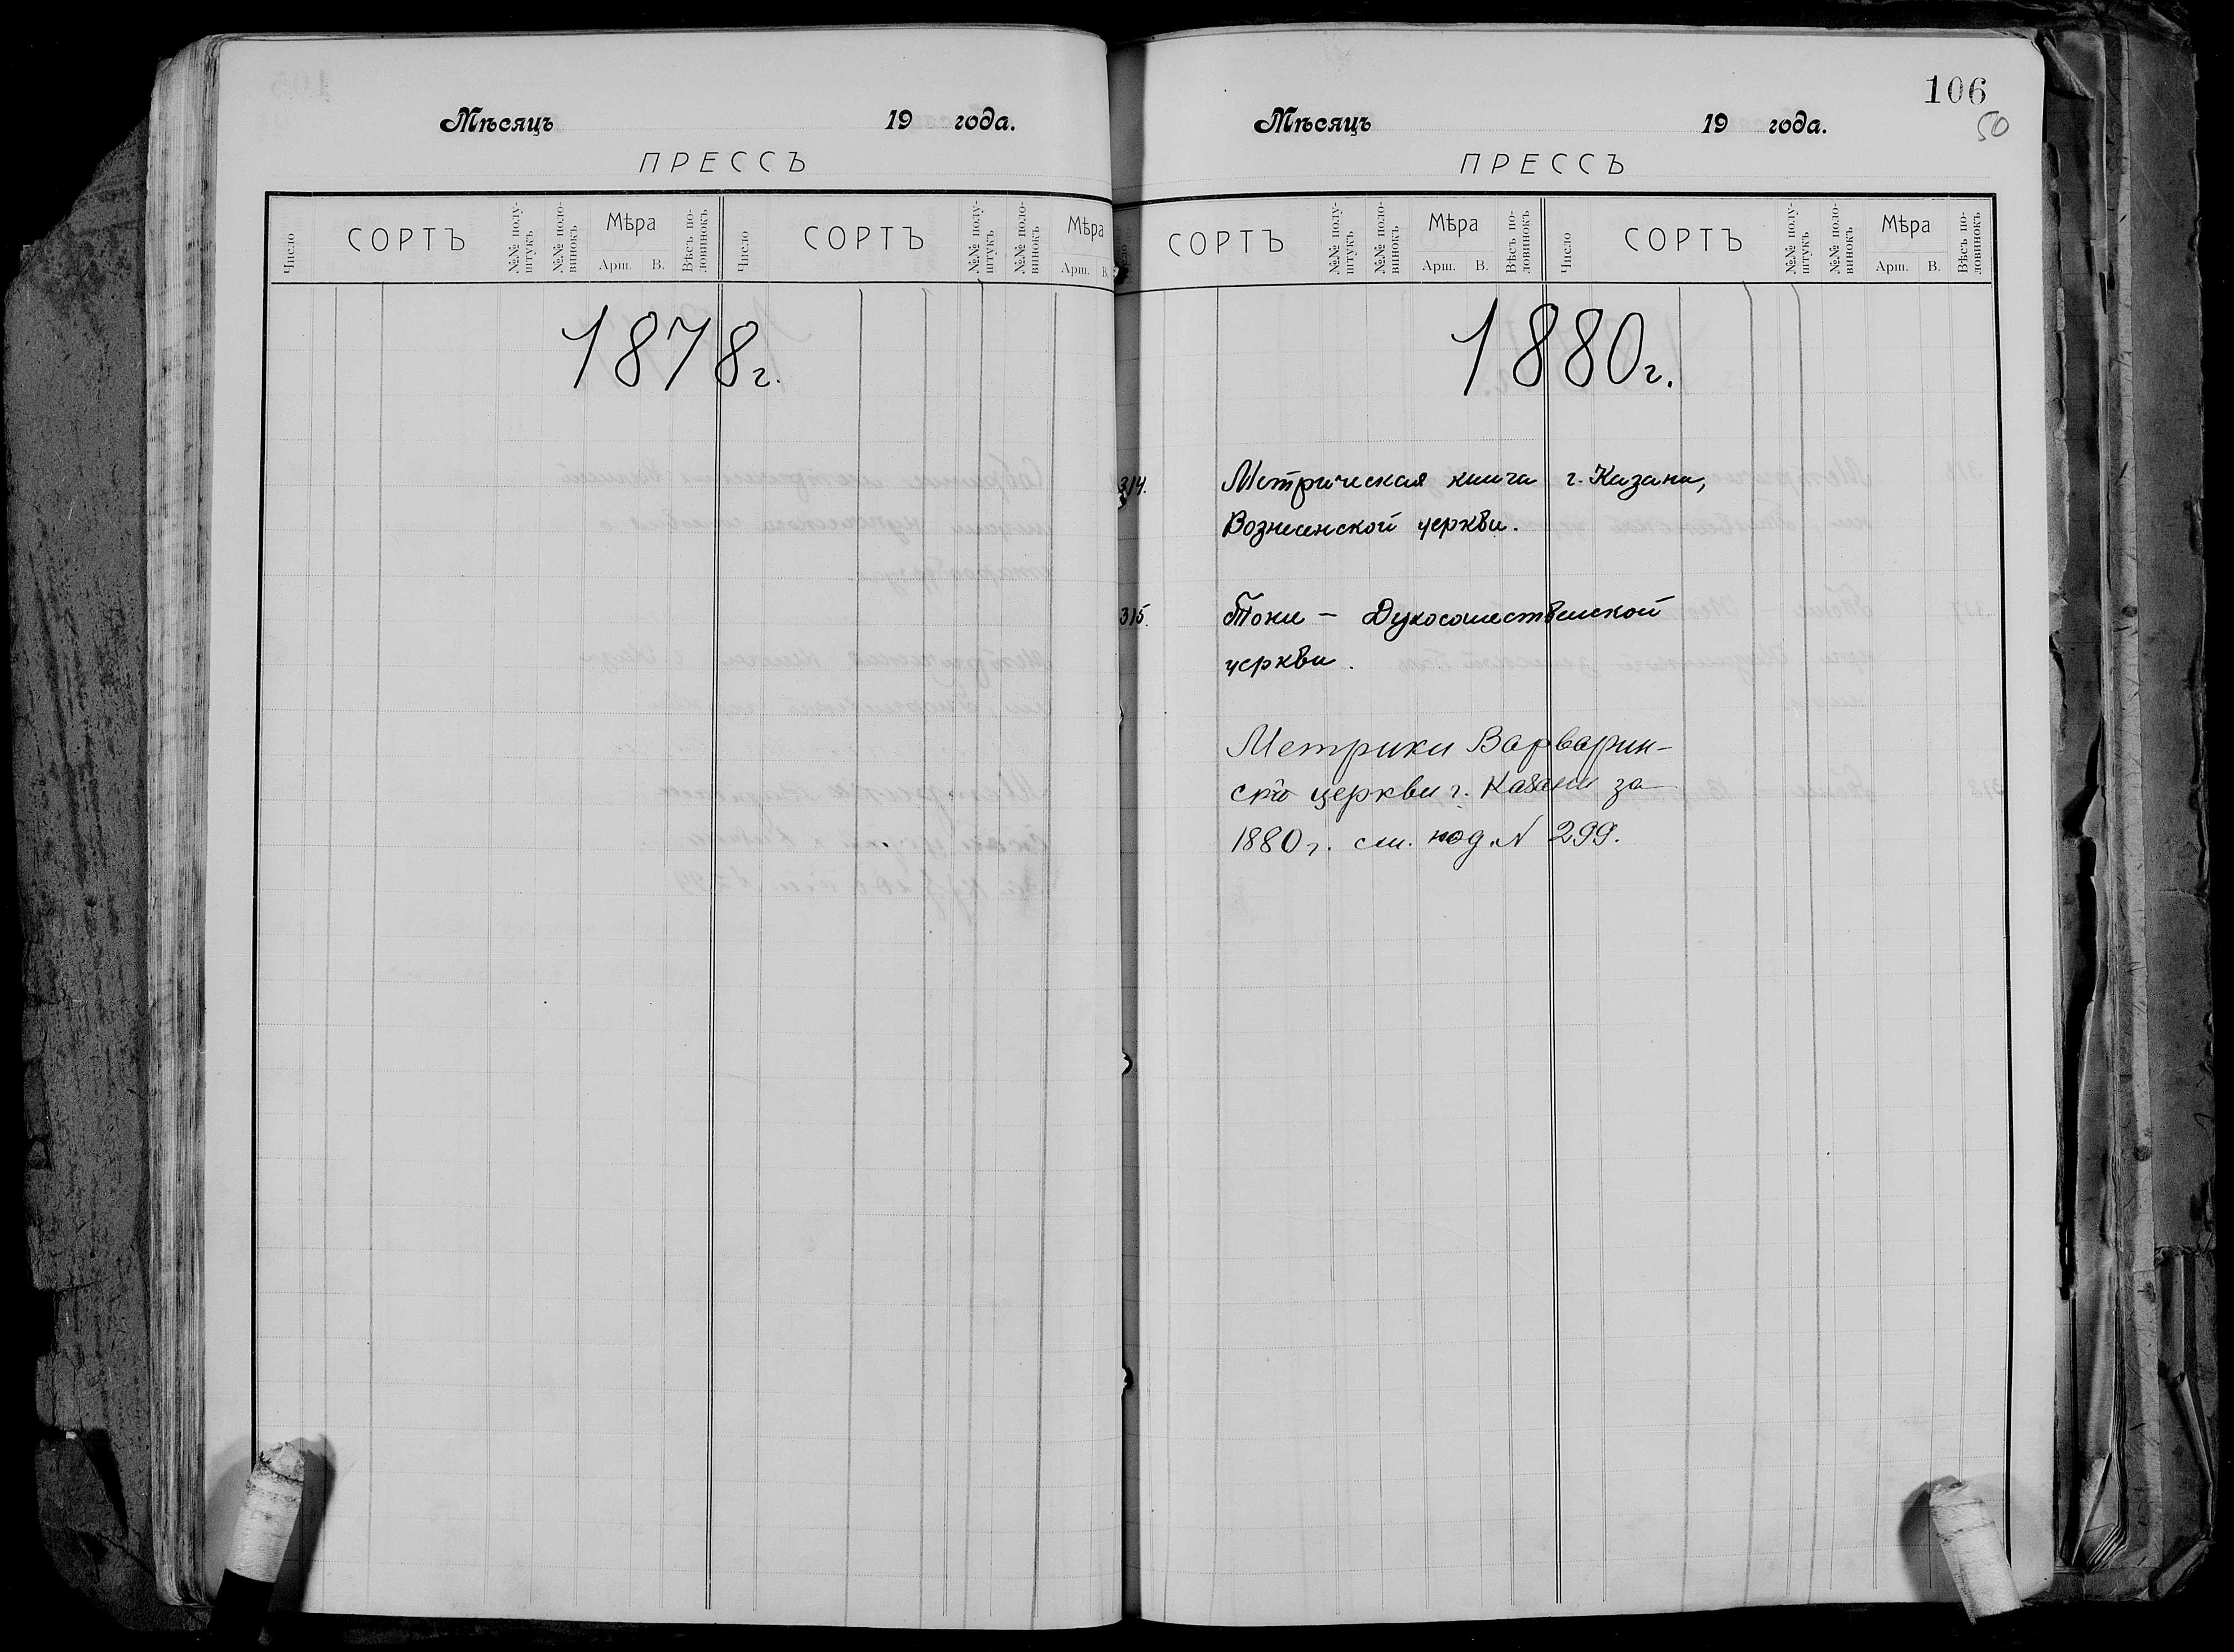 Мѣсяцъ 19 года.
ПРЕССЪ
Число СОРТЪ №№ полу-штукъ №№ поло-винокъ Мѣра Арш. В. Вѣсъ по-ловинокъ Число СОРТЪ №№ полу-штукъ №№ поло-винокъ Мѣра Арш. В.
1878г.
106
50
Мѣсяцъ 19 года.
ПРЕССЪ
СОРТЪ №№ полу-штукъ №№ поло-винокъ Мѣра Арш. В. Вѣсъ по-ловинокъ Число СОРТЪ №№ полу-штукъ №№ поло-винокъ Мѣра Арш. В. Вѣсъ по-ловинокъ
1880г.
314. Метрическая книга г. Казани,
Вознесенской церкви.
315. Тоже — Духосошественской
церкви.
Метрики Варварин-
ской церкви г. Казани за
1880г. см. под N 299.